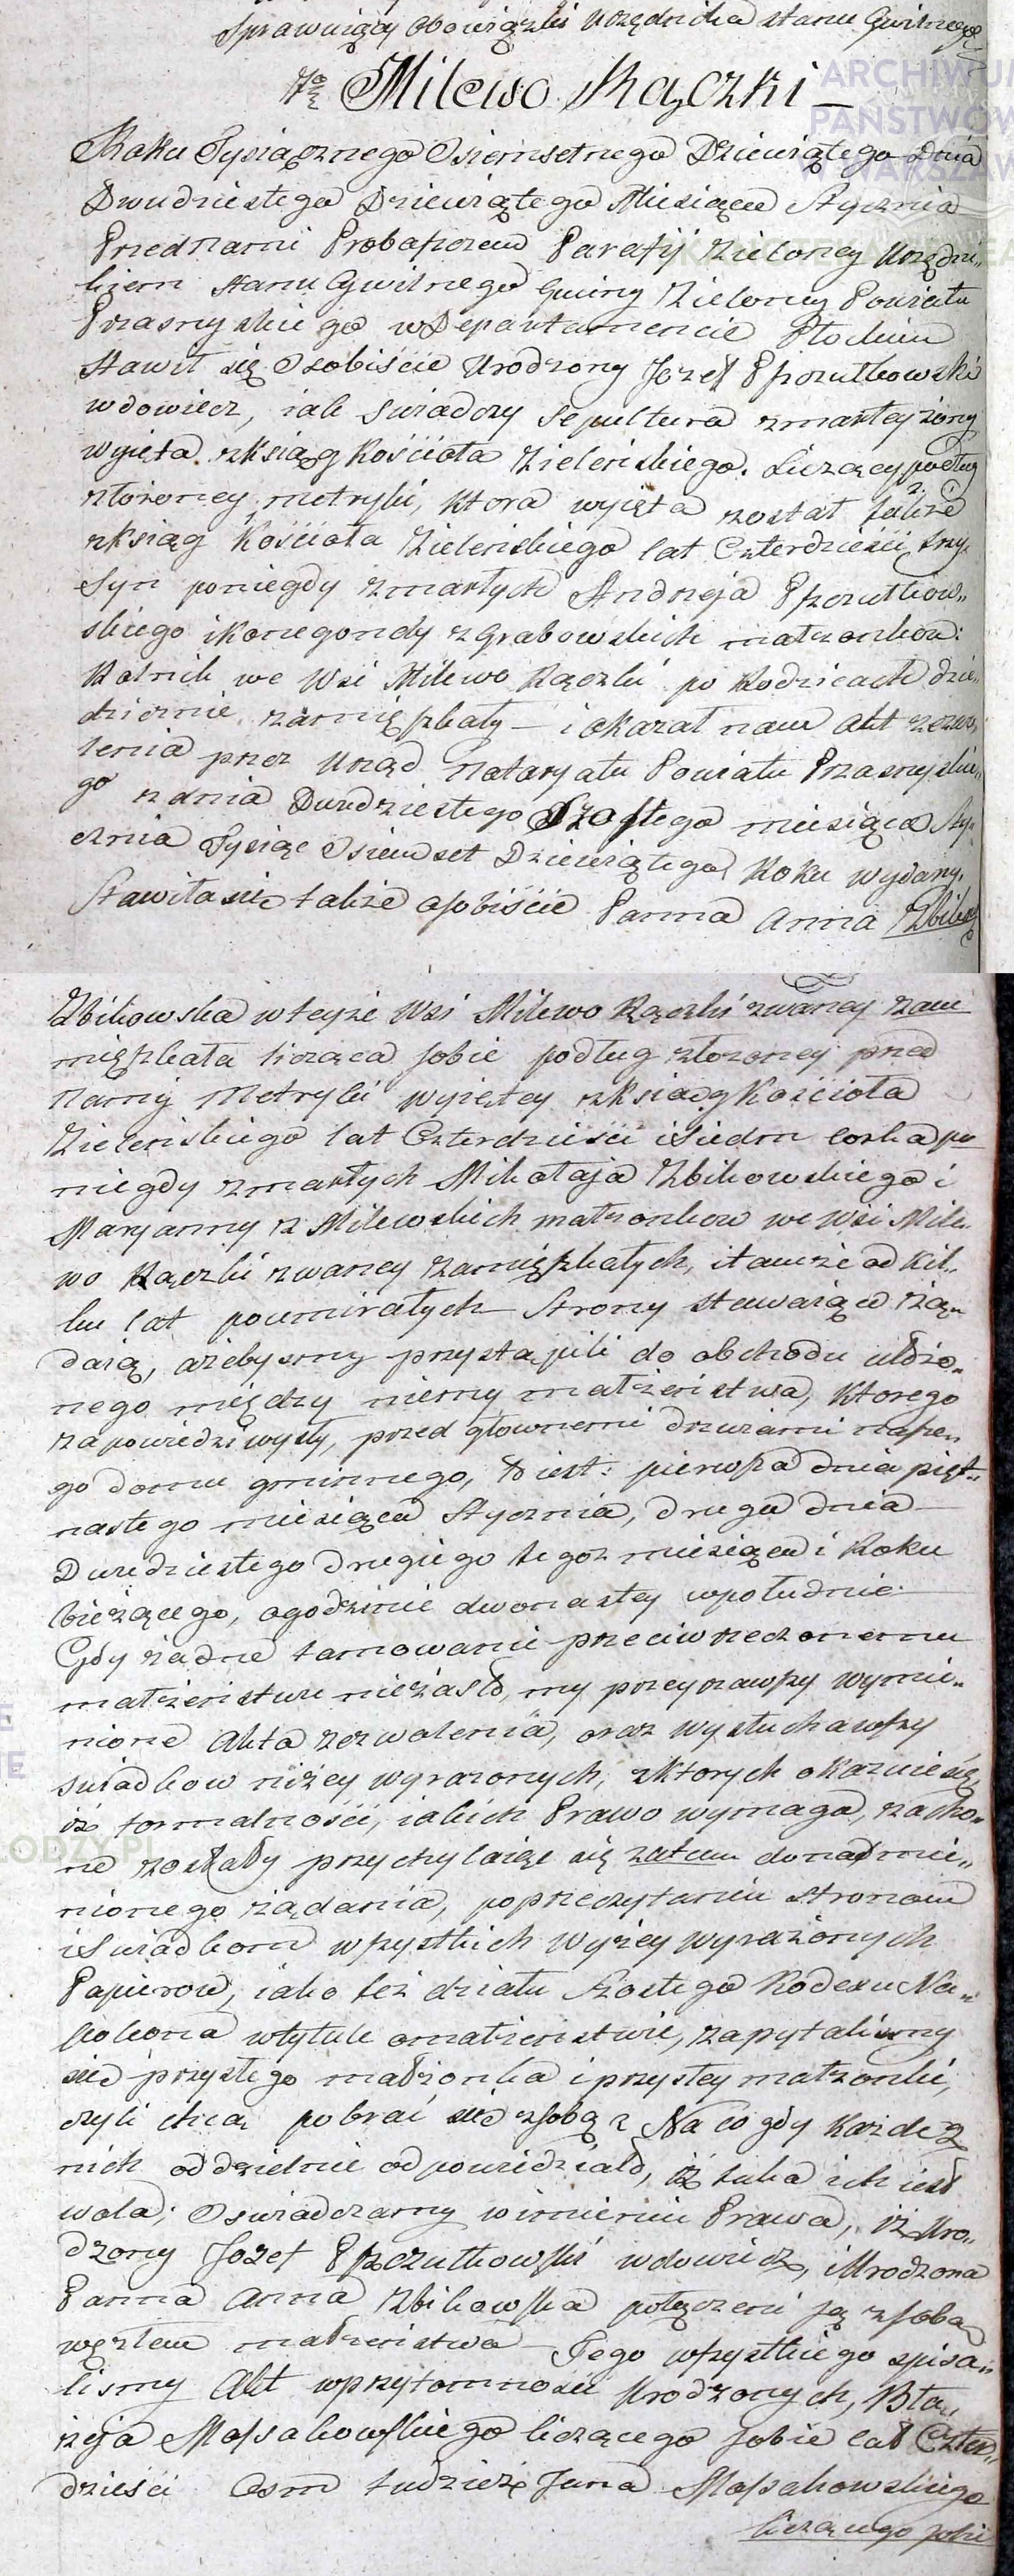 Sprawuiący Obowiązki Urzędnika stanu Cywilnego
ARCHIWUM
PAŃSTWOW
WARSZAW
Milewo Rączki —
Roku Tysiącznego Osiemsetnego Dziewiątego Dnia
Dwudziestego Dziewiątego Miesiąca Stycznia
Przednami Proboszczem Parafij Zieloney Urzędni„
kiem Stanu Cywilnego Gminy Zieloney Powiatu
Przasnyskiego w Departamencie Płockim
Stawił się Osobiście Urodzony Jozef Pszczułkowski
wdowiec, iak swiadczy sepultura zmarłey żony
wyięta z ksiąg Kościoła Zielenskiego. Liczący podług
złożoney metryki, ktora wyięta został także
z ksiąg Kościoła Zielenskiego lat Czterdzieści trzy
Syn poniegdy zmarłych Andrzeja Pszczułkow„
skiego i Konegondy z Grabowskich małzonkow:
Rolnik we Wsi Milewo Rączki po Rodzicach dzie„
dzicznie zamięszkały — i okazał nam akt zezwo„
lenia przez Urząd Notaryatu Powiatu Przasnyskie„
go z dnia Dwudziestego Szostego miesiąca Sty„
cznia Tysiąc Osiemset Dziewiątego Roku wydany.
Stawiła się także osobiście Panna Anna Zbikow
Zbikowska w teyże Wsi Milewo Rączki zwaney zam
mięszkała licząca sobie podług złozoney przed
Namy Metryki wyiętey z ksiąg Kościoła
Zielenskiego lat Czterdzieści i Siedm corka po
niegdy zmarłych Mikołaja Zbikowskiego i
Maryanny z Milewskich małzonkow we Wsi Mile
wo Rączki zwaney zamięszkałych, i tamże od kil„
ku lat poumirałych Strony stawaiące żą„
daią, ażebysmy przystąpili do obchodu ułożo„
nego między niemy małżenstwa, ktorego
zapowiedzi wyszły, przed głownemi drzwiami nasze„
go domu gminnego, to iest: pierwsza dnia pięt„
nastego miesiąca Stycznia, druga dnia
Dwudziestego drugiego tegoż miesiąca i Roku
bieżącego, o godzinie dwonastey wpołudnie.
Gdy żadne tamowanie przeciw rzeczonemu
małżenstwu niezaszło, my przeyrzawszy wymie„
nione Akta zezwolenia, oraz wysłuchawszy
swiadkow niżey wyrazonych, z ktorych okazuie się
iż formalności, iakich Prawo wymaga, zacho„
ne zostały przychylaiąc się zatem do nadmie„
nionego żądania, po przeczytaniu stronom
i Swiadkom wszystkich wyżey wyrażonych
Papierow, iako też działu szostego Kodexu Na„
poleona w tytule o małżenstwie, zapytalismy
się przyszłego małżonka i przyszłey małzonki,
czyli chcą pobrać się z sobą? Na co gdy każde z
nich oddzielnie odpowiedziało, iż taka ich iest
wola; Oswiadczamy w imieniu Prawa, iż Uro„
dzony Jozef Pszczułkowski wdowiec, i Urodzona
Panna Anna Zbikowska połączeni są z sobą
węzłem małżenstwa — Tego wszystkiego spisa„
lismy Akt w przytomności Urodzonych, Bła„
żeja Mossakowskiego liczącego sobie lat Czter„
dzieści Osm tudzież Jana Mossakowskiego
liczącego sobie